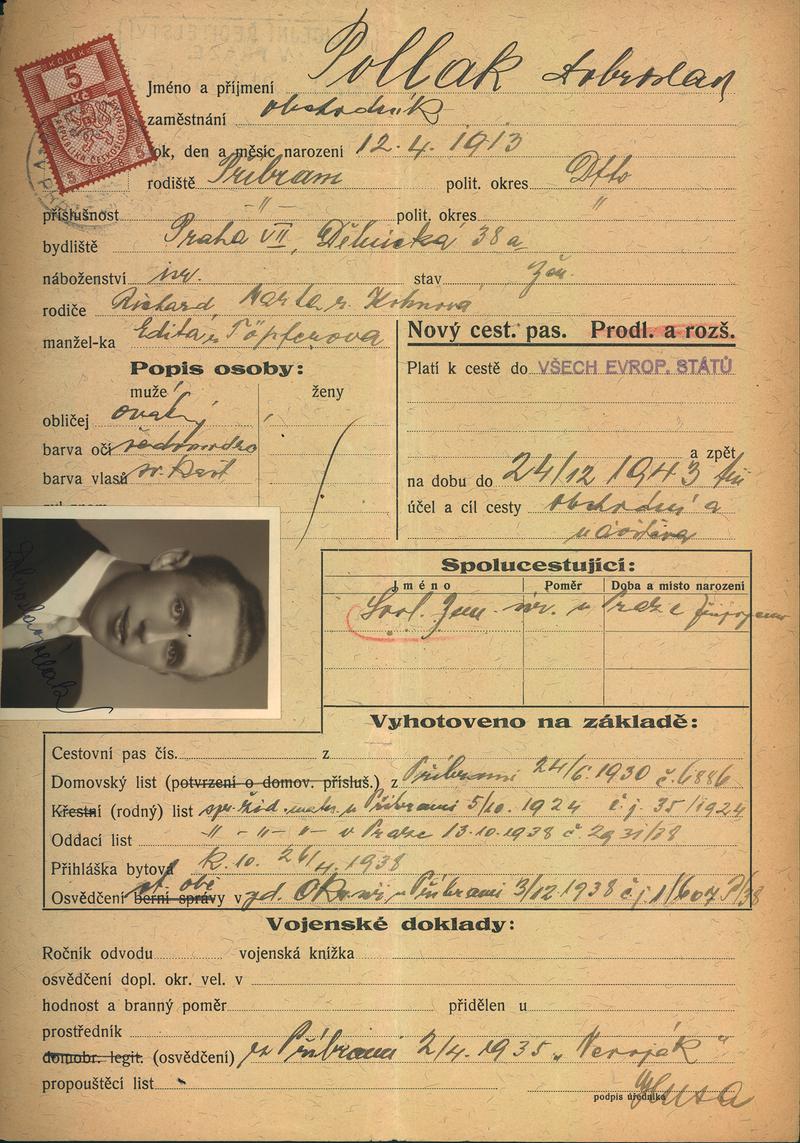 KOLEK
5
Kč
REPUBLIKA ČESKOSLOVENSKÁ
Jméno a příjmení Pollak Dobroslav
zaměstnání obchodník
rok, den a měsíc narození 12. 4. 1913
rodiště Příbram polit. okres Dtto
příslušnost -"- polit. okres "
bydliště Praha VII, Dělnická 38a
náboženství isr. stav žen.
rodiče Richard, Marta r. Kohnová
manžel-ka Edita r. Töpferova
Nový cest. pas. Prodl. a rozš.
Popis osoby:
Platí k cestě do VŠECH EVROP. STÁTŮ
muže ženy
obličej oválný
barva očí šedomodro
barva vlasů
a zpět
na dobu do 24/12 1943
účel a cíl cesty obchodní a
návštěva
Dobroslav Pollak
Spolucestující:
Jméno Poměr Doba a místo narození
v Praze
Vyhotoveno na základě:
Cestovní pas čís. z
Domovský list (potvrzení o domov. přísluš.) z Příbrami 24/6. 1930 č. 6886
Křestní (rodný) list žid. matr. v Příbrami 5/10. 1924 č.j. 35/1924
Oddací list -"- -"- -"- v Praze 13.10.1938 č. 2931/38
Přihláška bytová 26/4. 1938
Osvědčení st. obč berní správy v Příbrami 3/12 1938 č j
Vojenské doklady:
Ročník odvodu vojenská knížka
osvědčení dopl. okr. vel. v
hodnost a branný poměr přidělen u
prostředník
domobr. legit. (osvědčení) z Příbrami 2/4. 1935 „Nevoják"
propouštěcí list
podpis úředníka